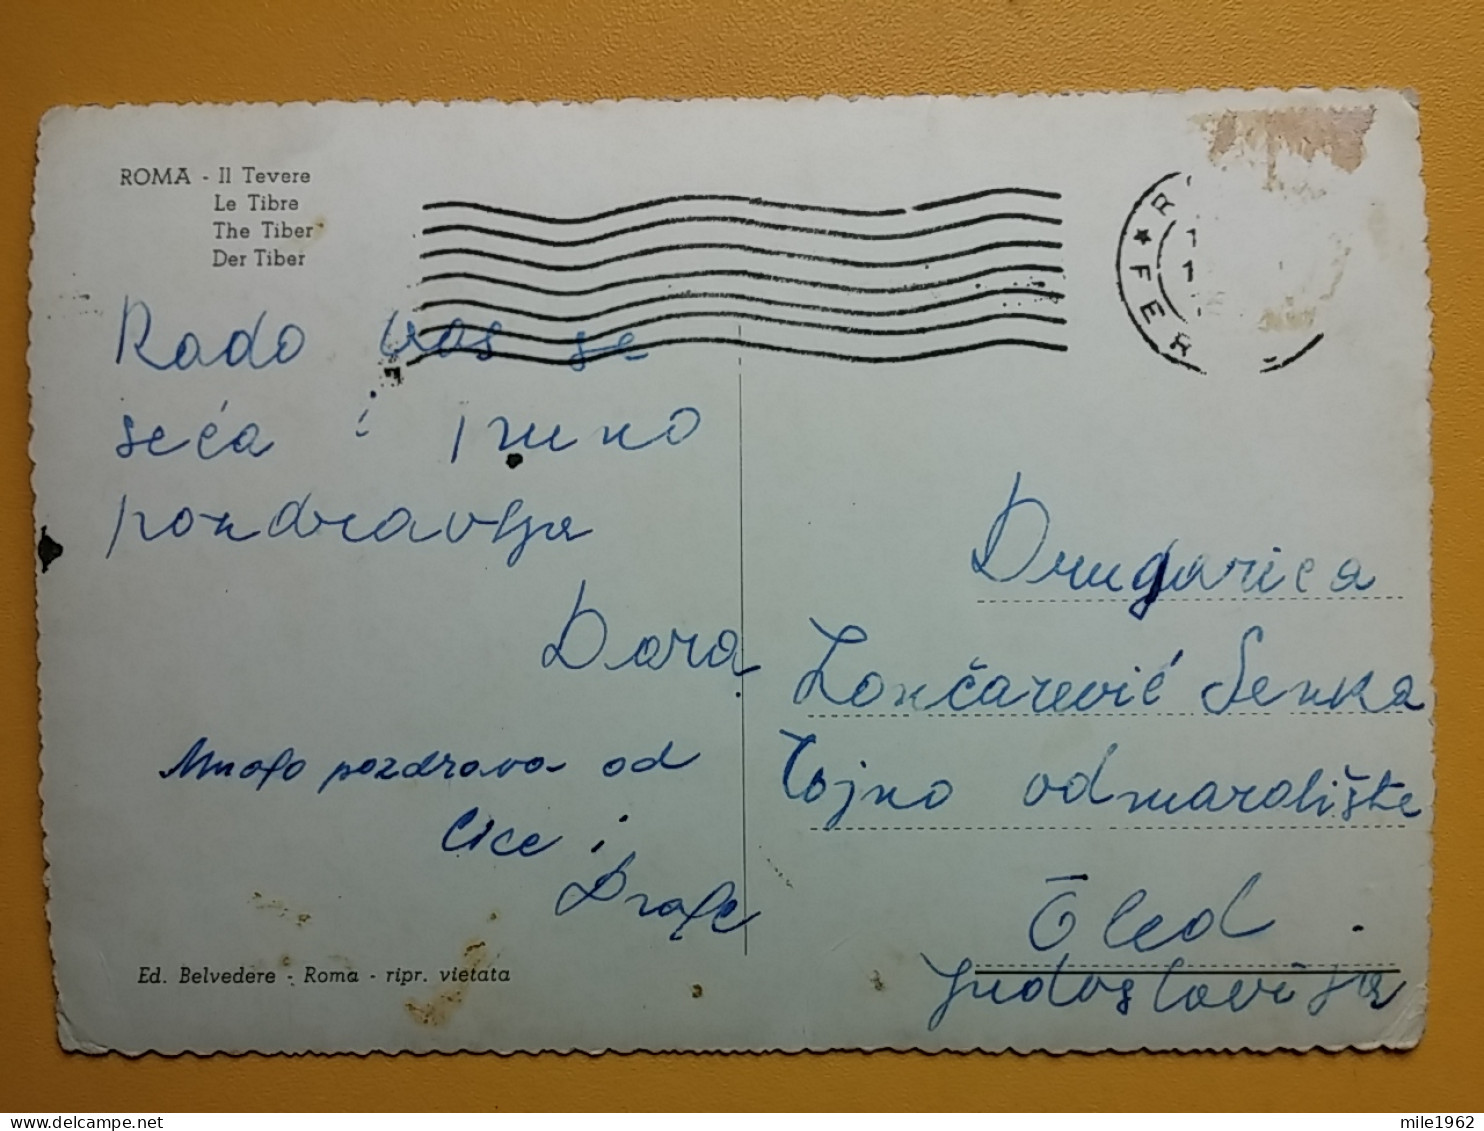 ROMA - Il Tevere
Le Tibre
The Tiber
Der Tiber
Rado vas se
seća i puno
pozdravlja
Dara
Mnogo pozdrava od
Cice i
Drage
Ed. Belvedere - Roma - ripr. vietata
R
FER
Drugarica
Lončarević Senka
Vojno odmaralište
Bled.
Jugoslavija
mile1962